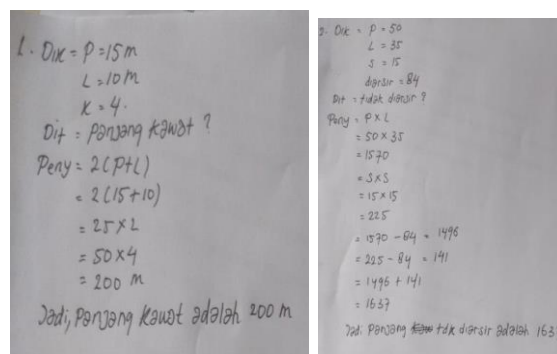 1. Dik = P = 15 m
L = 10 m
K = 4.
Dit = Panjang kawat ?
Peny = 2(P+L)
= 2(15+10)
= 25 x 2
= 50 x 4
= 200 m
Jadi, Panjang kawat adalah 200 m
2. Dik = P = 50
L = 35
S = 15
diarsir = 84
Dit = tidak diarsir ?
Peny = P x L
= 50 x 35
= 1570
= S x S
= 15 x 15
= 225
= 1570 - 84 = 1496
= 225 - 84 = 141
= 1496 + 141
= 1637
Jadi Panjang tdk diarsir adalah 163